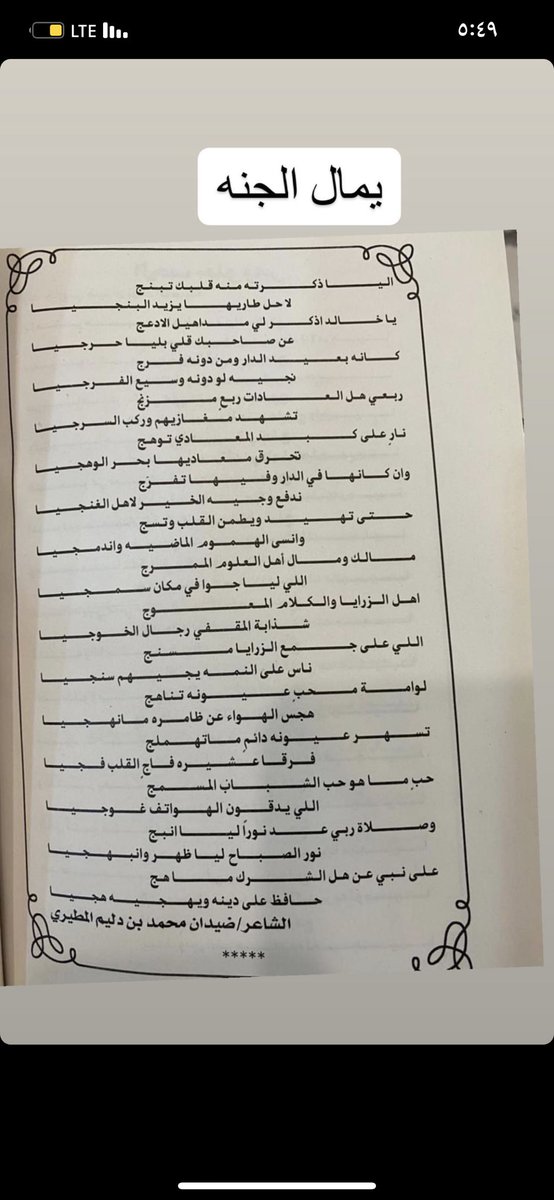 LTE
٥:٤٩
يمال الجنه
اليا ذكرته منه قلبك تبنج
لا حل طاريها يزيد البنجيا
يا خالد اذكر لي مداهيل الادعج
عن صاحبك قلي بليا حرجيا
كانه بعيد الدار ومن دونه فرج
نجيه لو دونه وسيع الفرجيا
ربعي هل العادات ربع مزغ
تشهد مغازيهم وركب السرجيا
نار على كبد المعادي توهج
تحرق معاديها بحر الوهجيا
وان كانها في الدار وفيها تفزج
ندفع وجيه الخير لاهل الغنجيا
حتى تهيد ويطمن القلب وتسج
وانسى الهموم الماضيه واندمجيا
مالك ومال أهل العلوم الممرج
اللي ليا جوا في مكان سمجيا
اهل الزرايا والكلام المعوج
شذابة المقفي رجال الخوجيا
اللي على جمع الزرايا مسنج
ناس على النمه يجيهم سنجيا
لوامة محب عيونه تناهج
هجس الهواء عن ظامره مانهجيا
تسهر عيونه دائم ماتهملج
فرقا عشيره فاج القلب فجيا
حب ما هو حب الشباب المسمج
اللي يدقون الهواتف غوجيا
وصلاة ربي عد نوراً ليا انبج
نور الصباح ليا ظهر وانبهجيا
على نبي عن هل الشرك ما هج
حافظ على دينه ويهجيه هجيا
الشاعر/ضيدان محمد بن دليم المطيري
*****